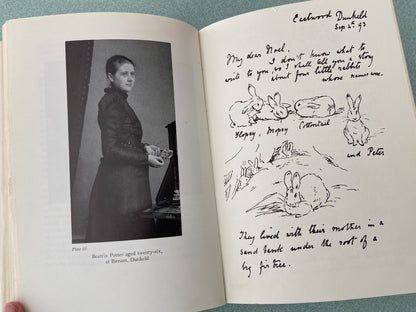 Plate 23
Beatrix Potter aged twenty-six,
at Birnam, Dunkeld
Eastwood Dunkeld
Sep 4th 93
My dear Noel,
I don't know what to
write to you, so I shall tell you a story
about four little rabbits
whose names were
Flopsy, Mopsy Cottontail
and Peter
They lived with their mother in a
sand bank under the root of a
big fir tree.